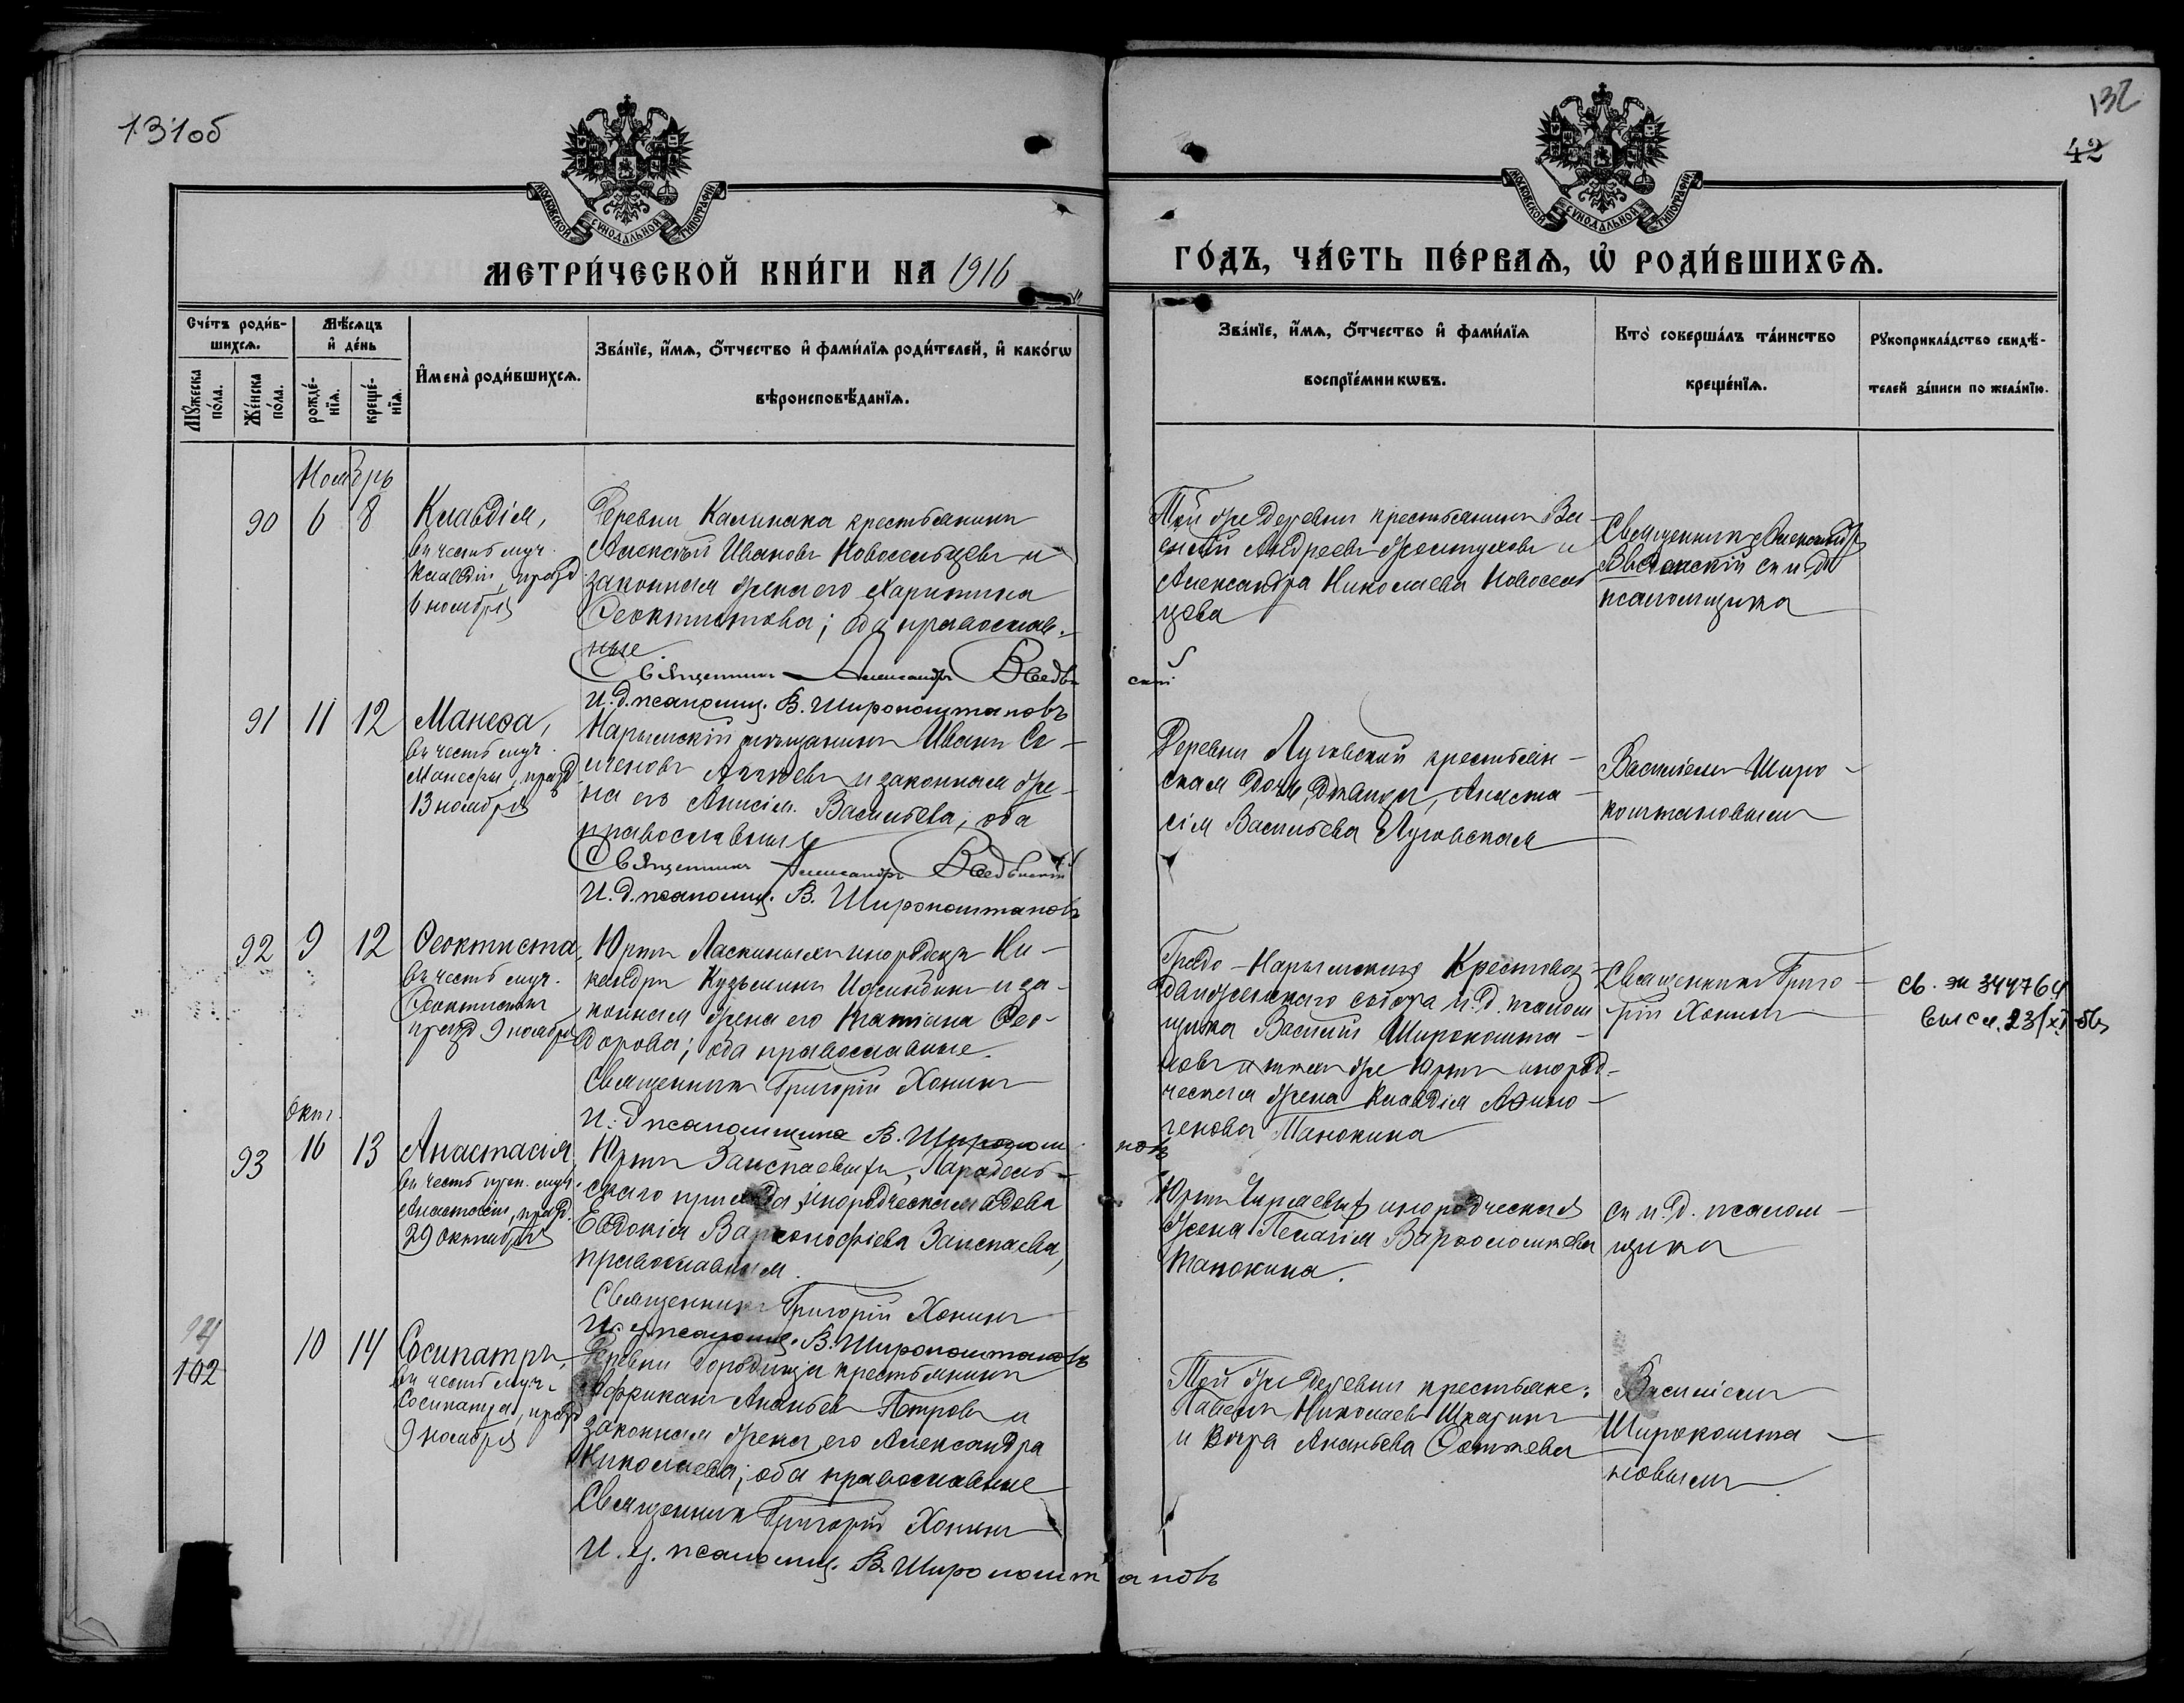 131об
132
42
МОСКОВСКОЙ СѴНОДАЛЬНОЙ ТИПОГРАФІИ
МОСКОВСКОЙ СѴНОДАЛЬНОЙ ТИПОГРАФІИ
МЕТРИ́ЧЕСКОЙ КНИ́ГИ НА 1916
ГО́ДЪ, ЧА́СТЬ ПЕ́РВАѦ, Ѡ҆ РОДИ́ВШИХСѦ.
Сче́тъ роди́в-
шихсѧ.
Мꙋ́жеска
по́ла.
Же́нска
по́ла.
Мѣ́сѧцъ
и҆ де́нь
рожде́-
нїѧ.
креще́-
нїѧ.
И҆мена̀ роди́вшихсѧ.
Зва́нїе, и҆́мѧ, ѻ҆́тчество и҆ фами́лїѧ роди́телей, и҆ како́гѡ
вѣроисповѣ́данїѧ.
Зва́нїе, и҆́мѧ, ѻ҆́тчество и҆ фами́лїѧ
воспрїе́мникѡвъ.
Кто̀ соверша́лъ та́инство
креще́нїѧ.
Рꙋкоприкла́дство свидѣ́-
телей за́писи по жела́нїю.
Ноябрь
90 6 8
Клавдія,
въ честь муч.
Клавдіи, празд
6 ноября
Деревни Калинака крестьянинъ
Алексѣй Ивановъ Новосельцевъ и
законная жена его Харитина
Феоктистова; оба православ-
ные
Священникъ Александръ Введен
скій
И.д. псаломщ. В. Широкоштановъ
Той же деревни крестьянинъ Ва
силій Андреевъ и
Александра Николаева Новосель
цева
Священникъ Александръ
Введенскій съ и.д.
псаломщика
91 11 12
Манефа,
въ честь муч.
Манефы, празд
13 ноября
Нарымскій мѣщанинъ Иванъ Се-
меновъ и законная же-
на его Анисія Васильева, оба
православные
Священникъ Александръ Введенскій
И.д. псаломщ. В. Широкоштановъ
Деревни Луговской крестьян-
ская дочь, дѣвица, Анаста-
сія Васильева Луговская
Василіемъ Широ-
коштановымъ
92 9 12
Феоктиста,
въ честь муч.
Феоктисты
празд 9 ноября
Юртъ Ласкиныхъ инородецъ Ни-
кандръ Кузьминъ и за-
конная жена его Татіана Фео-
дорова; оба православные.
Священникъ Григорій Хонинъ
И.д. псаломщика В. Широкошта
новъ
Градо-Нарымскаго Крестовоз-
движенскаго собора и.д. псалом
щика Василій Широкошта-
новъ и тѣхъ же Юртъ инород-
ческая жена Клавдія Афино-
генова Танокина
Священникъ Григо-
рій Хонинъ
Св. за 344764
высл. 23/XI-56
Окт.
93 16 13
Анастасія,
въ честь преп. муч.
Анастасіи, празд.
29 октября
Юртъ Заиспаевыхъ, Парабель-
скаго прихода, инородческая вдова
Евдокія Варсонофіева Заиспаева,
православная.
Священникъ Григорій Хонинъ
И.д. псаломщ. В. Широкоштановъ
Юртъ инородческая
жена Пелагія Варфоломеева
Танокина.
съ и.д. псалом-
щика
94
102 10 14
Сосипатръ,
въ честь муч.
Сосипатра, празд
9 ноября
Деревни Городища крестьянинъ
Африканъ Ананьевъ Петровъ и
законная жена его Александра
Николаева; оба православные
Священникъ Григорій Хонинъ
И.д. псаломщ. В. Широкоштановъ
Той же деревни крестьяне:
Павелъ Николаевъ Шкаринъ
и Вѣра Ананьева
Василіемъ
Широкошта-
новымъ